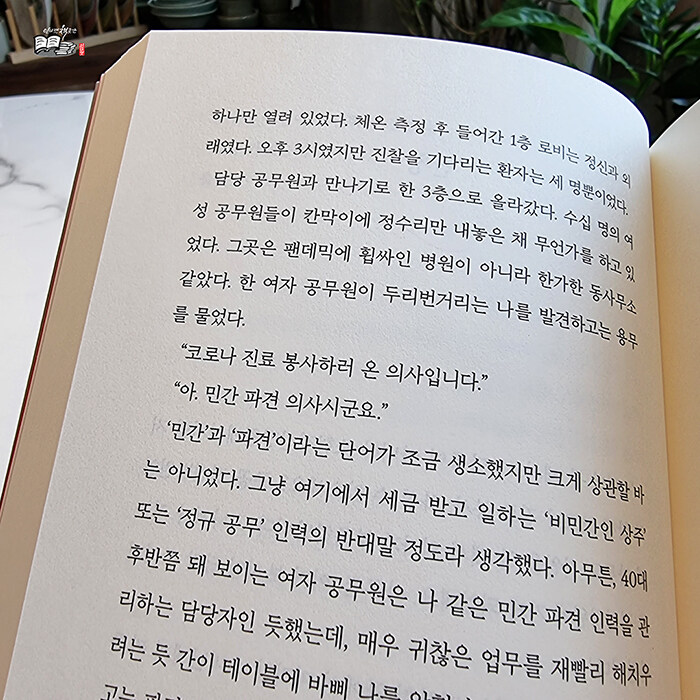 하나만 열려 있었다. 체온 측정 후 들어간 1층 로비는 정신과 외
래였다. 오후 3시였지만 진찰을 기다리는 환자는 세 명뿐이었다.
담당 공무원과 만나기로 한 3층으로 올라갔다. 수십 명의 여
성 공무원들이 칸막이에 정수리만 내놓은 채 무언가를 하고 있
었다. 그곳은 팬데믹에 휩싸인 병원이 아니라 한가한 동사무소
같았다. 한 여자 공무원이 두리번거리는 나를 발견하고는 용무
를 물었다.
“코로나 진료 봉사하러 온 의사입니다.”
“아. 민간 파견 의사시군요.”
‘민간’과 ‘파견’이라는 단어가 조금 생소했지만 크게 상관할 바
는 아니었다. 그냥 여기에서 세금 받고 일하는 ‘비민간인 상주’
또는 ‘정규 공무’ 인력의 반대말 정도라 생각했다. 아무튼, 40대
후반쯤 돼 보이는 여자 공무원은 나 같은 민간 파견 인력을 관
리하는 담당자인 듯했는데, 매우 귀찮은 업무를 재빨리 해치우
려는 듯 간이 테이블에 바삐 나를